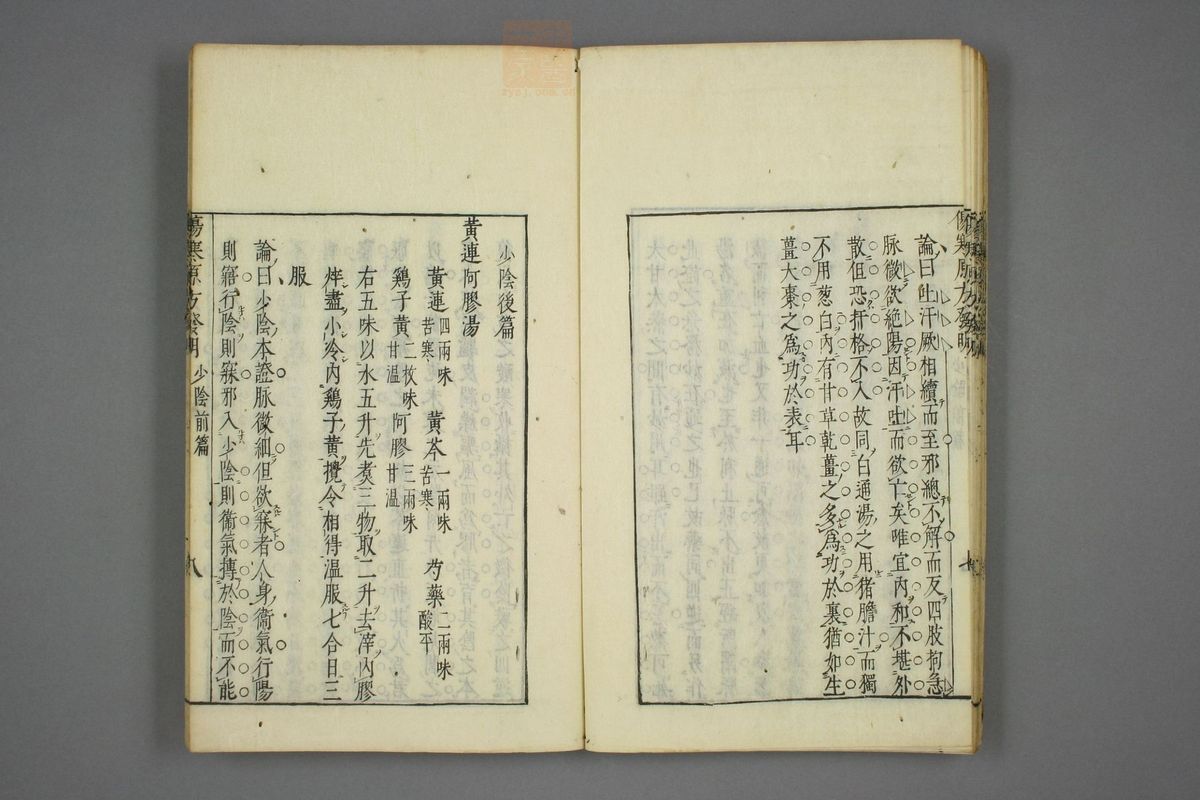 傷寒原方發明
論曰吐汗厥相續而至邪總不解而反四肢拘急
脉微欲絶陽因汗吐而欲亡矣唯宜內和不堪外
散但恐扞格不入故同白通湯之用猪膽汁而獨
不用葱白內有甘草乾薑之多爲功於裏猶如生
薑大棗之爲功於表耳
七
少陰後篇
黃連阿膠湯
黃連四兩味苦寒 黃芩一兩味苦寒 芍藥二兩味酸平
鷄子黃二枚味甘溫 阿膠三兩味甘溫
右五味以水五升先煑三物取二升去滓內膠
烊盡小冷內鷄子黃攪令相得溫服七合日三
服
論曰少陰本證脉微細但欲寐者人身衛氣行陽
則寤行陰則寐邪入少陰則衛氣摶於陰而不能
傷寒原方發明 少陰前篇 八
zysj.com.cn